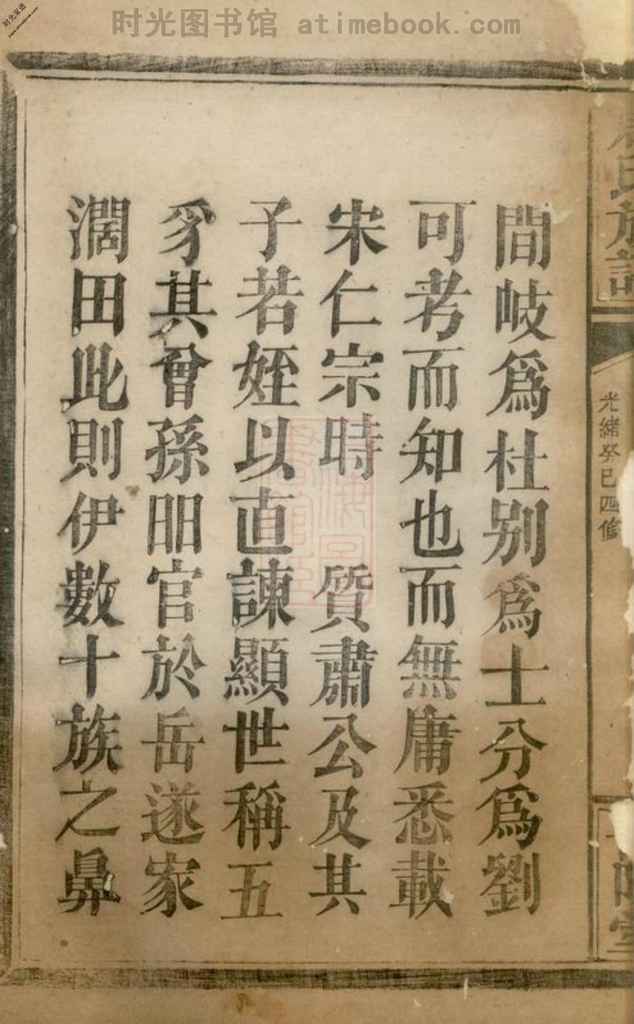 时光图书馆 atimebook.com
氏族譜
光緒癸巳四修
堂
間岐爲杜別爲士分爲劉
可考而知也而無庸悉載
宋仁宗時 質肅公及其
子若姪以直諫顯世稱五
豸其曾孫昍官於岳遂家
濶田此則伊數十族之鼻